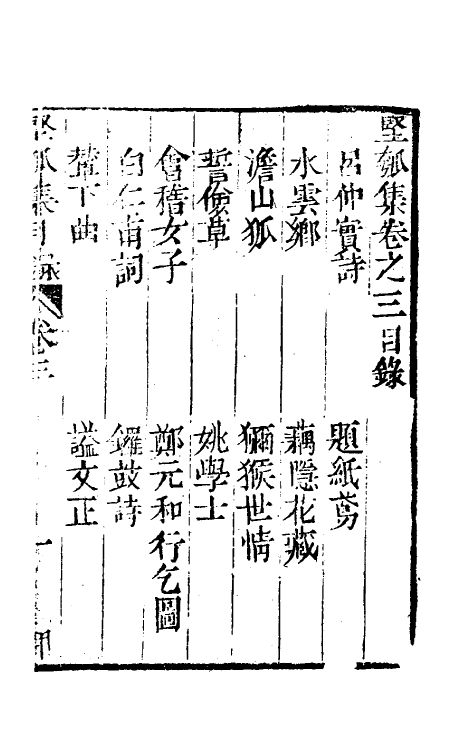 堅瓠集卷之三目錄
呂仲實詩　題紙鳶
水雲鄉　藕隱花藏
澹山狐　獼猴世情
誓儉草　姚學士
會稽女子　鄭元和行乞圖
白仁甫詞　鑼鼓詩
輦下曲　謚文正
堅瓠集目錄　卷三　一